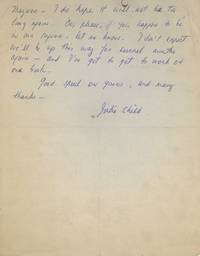 anyone – I do hope it will not be too
long again. So please, if you happen to be
in our region, let us know. I don't expect
we'll be up this way for several months
again – and I've got to get to work on
our book.
Good speed on yours, and many
thanks –
Julia Child